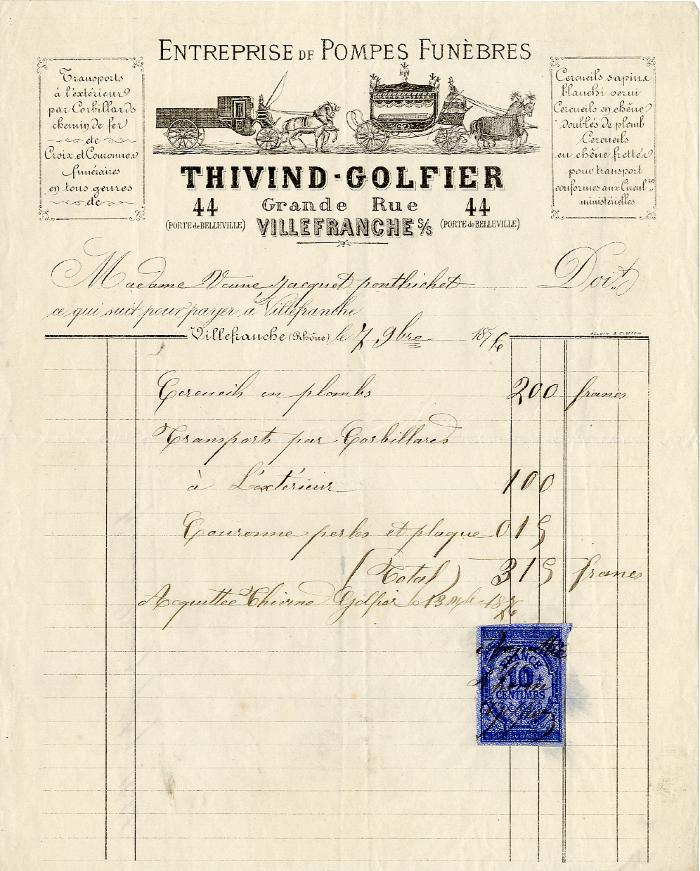 ENTREPRISE DE POMPES FUNÈBRES
Transports
à l'extérieur
par Corbillards
chemin de fer
de
Croix et Couronnes
funéraires
en tous genres
de
Cercueils sapins
blanchi verni
Cercueils en chêne
doublés de plomb
Cercueils
en chêne frettés
pour transport
conformes aux Circul.res
ministérielles
THIVIND-GOLFIER
44 Grande Rue 44
(PORTE DE BELLEVILLE) VILLEFRANCHE S/S (PORTE DE BELLEVILLE)
Madame Veuve Jacquet ponthichet Doit
ce qui suit pour payer à Villefranche
Villefranche (Rhône) le 7 9bre 1876
Cerceuils en plombs 200 francs
Transports par Corbillards
à L'extérieur 100
Couronne perles et plaque 015
(Total) 315 francs
Acquittée Thivind Golfier 1876
10
CENTIMES